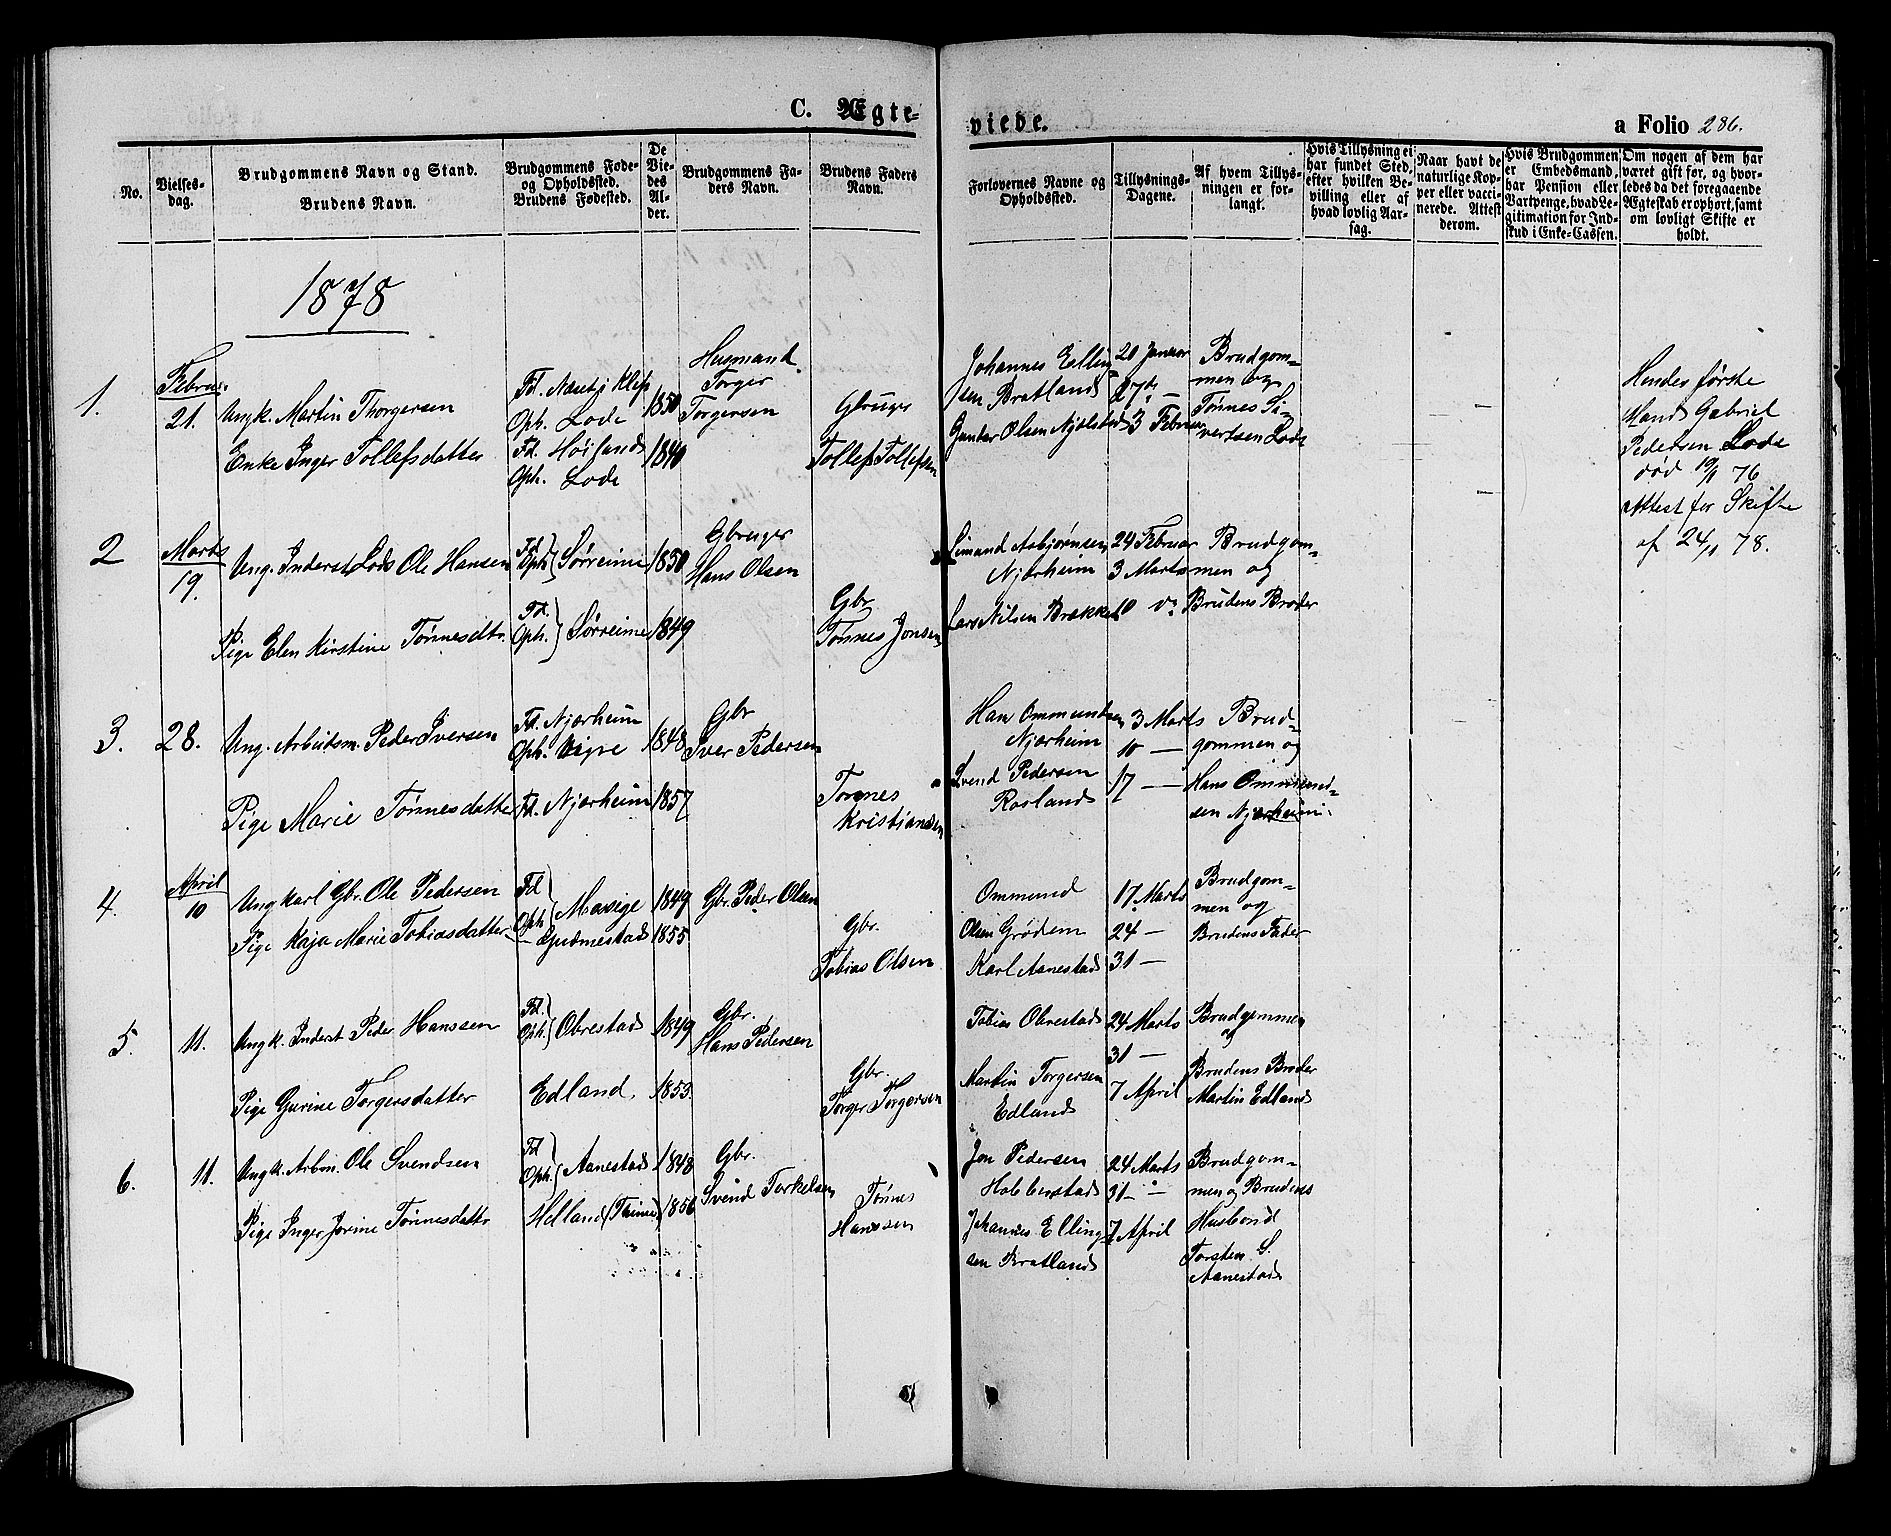 C. Ægte-
viede.
a Folio 286.
No.
Vielses-
dag.
Brudgommens Navn og Stand.
Brudens Navn.
Brudgommens Føde-
og Opholdssted.
Brudens Fødested.
De
Vie-
des
Al-
der.
Brudgommens Fa-
ders Navn.
Brudens Faders
Navn.
Forlovernes Navne og
Opholdssted.
Tillysnings-
Dagene.
Af hvem Tillys-
ningen er for-
langt.
Hvis Tillysning ei
har fundet Sted,
efter hvilken Be-
villing eller af
hvad lovlig Aar-
sag.
Naar havt de
naturlige Kop-
per eller vacci-
nerede. Attest
derom.
Hvis Brudgommen
er Embedsmand,
har Pension eller
Vartpenge, hvad Le-
gitimation for Ind-
skud i Enke-Cassen.
Om nogen af dem har
været gift før, og hvor-
ledes da det foregaaende
Ægteskab er ophørt, samt
om lovligt Skifte er
holdt.
1878
1.
Februar
21.
Ungk. Martin Thorgersen
Enke Inger Tollefsdatter
Fd. Næsbj Klep
Oph. Lode
Fd. Høiland
Oph. Lode
1850
1840
Husmand
Torger
Torgersen
Gbruger
Tollef Tollefsen
Johannes Elling
sen Bratland
Gunder Olsen Njølstad
20 Januar
27de —
3 Februar
Brudgom-
men og
Tønnes Si-
vertsen Lode
Hendes første
Mand Gabriel
Pedersen Lode
død 19/1 76
Attest for Skifte
af 24/1 78.
2
Marts
19.
Ung. Inderst Lods Ole Hansen
Pige Elen Kirstine Tønnesdtr.
Fd.
Oph. } Sørreime
Fd.
Oph. } Sørreime
1850
1849
Gbruger
Hans Olsen
Gbr.
Tønnes Jonsen
Simund Asbjørnsen
Njærheim
Lars Nilsen Brække
24 Februar
3 Marts
10 do
Brudgom-
men og
Brudens Broder
3.
28.
Ung. Arbeidsm. Peder Iversen
Pige Marie Tønnesdatter
Fd. Njærheim
Oph. Vigre
Fd. Njærheim
1848
1857
Gbr
Iver Pedersen
Tønnes
Kristiansen
Han Ommundsen
Njærheim
Svend Pedersen
Rosland
3 Marts
10 —
17 —
Brud-
gommen og
Hans Ommund-
sen Njærheim.
4.
April
10
Ungkarl Gbr. Ole Pedersen
Pige Kaja Marie Tobiasdatter
Fd
Oph } Mossige
— Gudmestad
1849
1855
Gbr. Peder Olsen
Gbr.
Tobias Olsen
Ommund
Olsen Grødem
Karl Aanestad
17. Marts
24 —
31 —
Brudgom-
men og
Brudens Fader
5.
11.
Ungk. Inderst Peder Hanssen
Pige Gurine Torgersdatter
Fd.
Oph. } Obrestad
Edland
1849
1853.
Gbr.
Hans Pedersen
Gbr.
Torger Torgersen
Tobias Obrestad
Martin Torgersen
Edland
24 Marts
31 —
7 April
Brudgommen
og
Brudens Broder
Martin Edland
6.
11.
Ungk. Arbm. Ole Svendsen
Pige Inger Jorine Tønnesdatter
Fd
Oph. } Aanestad
Helland (Thime)
1848
1856
Gbr.
Svend Torkelsen
Tønnes
Hanssen
Jon Pedersen
Hobberstad
Johannes Elling-
sen Bratland
24 Marts
31 —
7 April
Brudgom-
men og Brudens
Husbond
Torsten S.
Aanestad